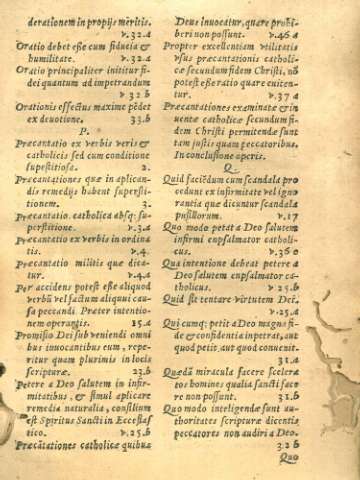 derationem in propijs meritis.
v.32.a
Oratio debet esse cum fiducia &
humilitate. v.32.a
Oratio principaliter inititur fi-
dei quantum ad impetrandum
v.32 b
Orationis effectus maxime pẽdet
ex deuotione. 33.b
P.
Præcantatio ex verbis veris &
catholicis sed cum conditione
supestitiosa. 2.
Præcantationes quæ in applican-
dis remedijs habent supersti-
tionem. 3.
Præcantatio catholica absq; su-
perstitione. v.3.a
Præcantatio ex verbis in ordina
tis. v.4.
Præcantatio militis quæ dica-
tur. v.4.a
Per accidens potest esse aliquod
verbũ vel factum aliqui cau-
sa peccandi. Præter intentio-
nem operantis. 15.a
Promissio Dei sub veniendi omni
bus inuocantibus eum, repe-
ritur quam plurimis in locis
scripturæ. 23.b
Petere a Deo salutem in infir-
mitatibus, & simul aplicare
remedia naturalia, consilium
est Spiritus Sancti in Ecclesias
tico. v.25.b
Precãtationes catholicæ quibus
Deus inuocatur, quare prohi-
beri non possunt. v.46.a
Propter excellentiam vtilitatis
vsus præcantationis catholi-
cæ secundum fidem Christi, nõ
potest esse ratio quare euiten-
tur. v.37.a
Præcantationes examinatæ & in
uentæ catholicæ secundum fi-
dem Christi permitendæ sunt
tam justis quam peccatoribus.
In conclusione operis.
Q.
Quid faciẽdum cum scandala pro
cedunt ex infirmitate vel igno
rantia quæ dicuntur scandala
pusillorum. v.17
Quo modo petat a Deo salutem
infirmi enpsalmator catholi-
cus. v.36
Qua intentione debeat petere a
Deo salutem enpsalmator ca-
tholicus. v.25.b
Quid sit tentare virtutem Dei.
v.25.a
Qui cumq; petit a Deo magna fi-
de & confidentia inpetrat, aut
quod petit, aut quod conuenit.
31.a
Quædã miracula facere scelera
tos homines qualia sancti face
re non possunt. 31.b
Quo modo inteligendæ sunt au-
thoritates scripturæ dicentis,
peccatores non audiri a Deo.
32 b
Quo